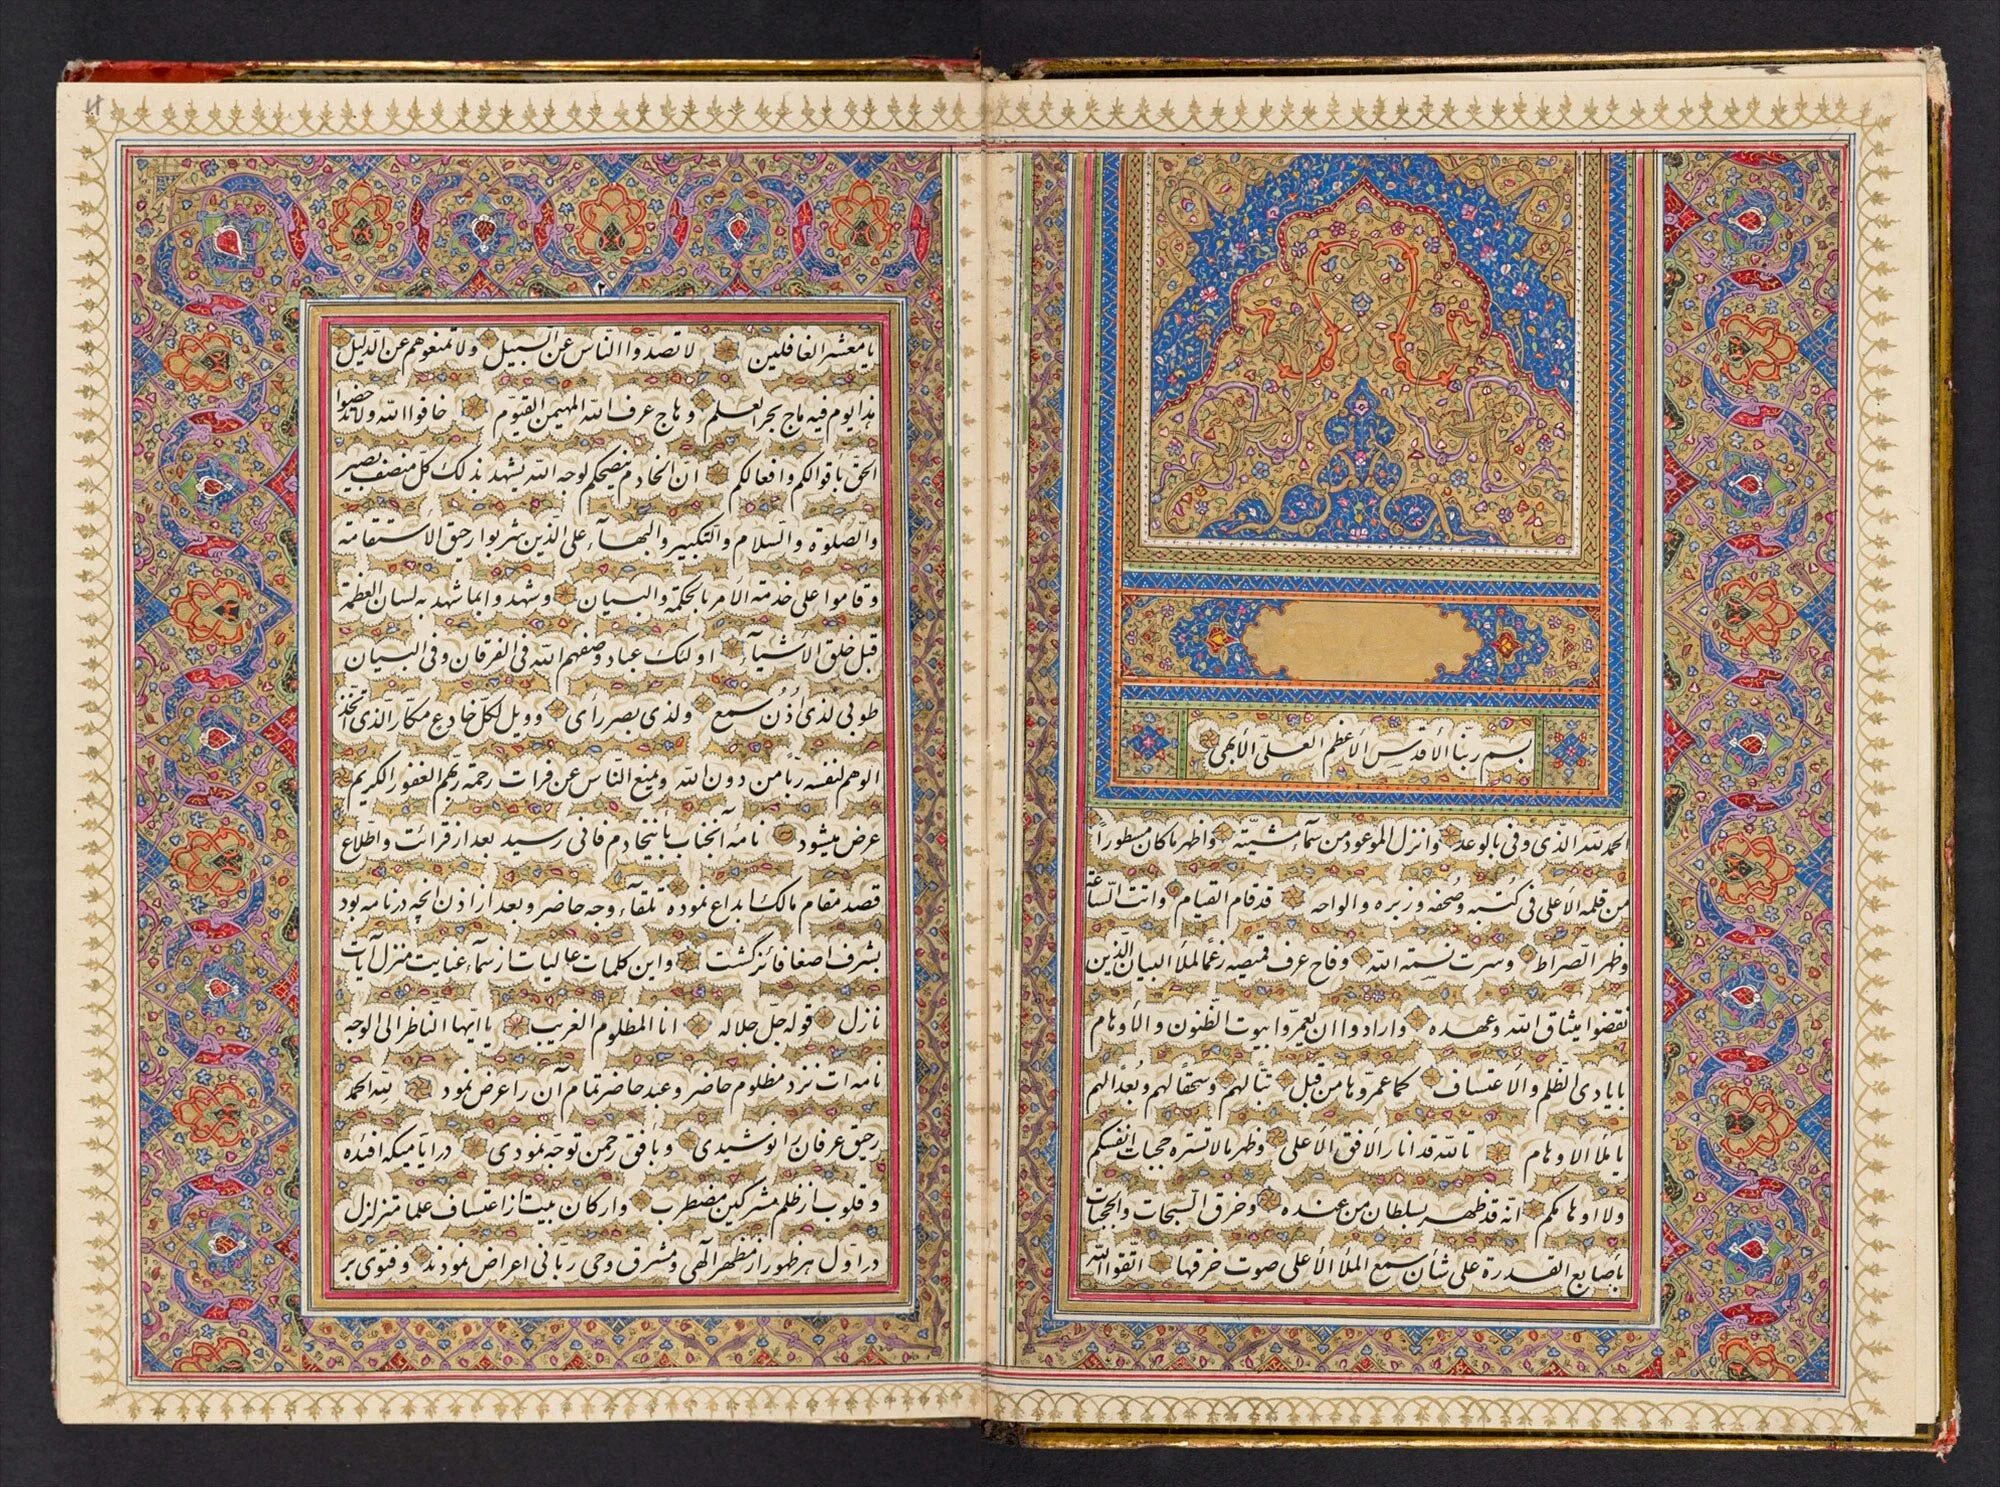 بسم ربّنا الأقدس الأعظم العلیّ الأبهی
الحمد لله الّذی وفی بالوعد و انزل الموعود من سمآء مشیّته و اظهر ما کان مسطوراً
من قلمه الأعلی فی کتبه و صُحفه و زبره و الواحه قد قام القیام و اتت السّاعة
و ظهر الصّراط و سرت نسمة الله و فاح عرف قمیصه رغماً لملأ البیان الّذین
نقضوا میثاق الله و عهده و ارادوا ان یعمّروا بیوت الظّنون و الأوهام
بایادی الظلم و الأعتساف کما عمّروها من قبل تبّاً لهم و سحقاً لهم و بُعداً لهم
یا ملأ الاوهام تالله قد انار الأفق الأعلی و ظهر ما لا تستره حجبات انفسکم
و لا اوهامکم انّه قد ظهر بسلطان من عنده و خرق السّبحات و الحجبات
بأصابع القدرة علی شأن سمع الملأ الأعلی صوت خرقها اتّقوا الله
٢
یا معشر الغافلین لا تصدّوا النّاس عن السّبیل و لا تمنعوهم عن الدّلیل
هذا یوم فیه ماج بحر العلم و هاج عرف الله المهیمن القیّوم خافوا الله و لا تدحضوا
الحقّ باقوالکم و افعالکم انّ الخادم ینصحکم لوجه الله یشهد بذلک کلّ منصف بصیر
و الصّلوة و السّلام و التّکبیر و البهآء علی الّذین شربوا رحیق الأستقامة
و قاموا علی خدمة الأمر بالحکمة و البیان و شهدوا بما شهد به لسان العظمة
قبل خلق الأشیآء اولئک عباد وصفهم الله فی الفرقان و فی البیان
طوبی لذی اُذُن سمع و لذی بصر رأی و ویل لکلّ خادع مکّار الّذی اتّخذ
الوهم لنفسه ربّاً من دون الله و یمنع النّاس عن فرات رحمة ربّهم الغفور الکریم
عرض میشود نامهٔ آنجناب باینخادم فانی رسید بعد از قرائت و اطّلاع
قصد مقام مالک ابداع نموده تلقآء وجه حاضر و بعد از اذن انچه در نامه بود
بشرف اصغا فائز گشت و این کلمات عالیات از سمآء عنایت منزل آیات
نازل قوله جلّ جلاله انا المظلوم الغریب یا ایّها النّاظر الی الوجه
نامه ات نزد مظلوم حاضر و عبد حاضر تمام آن را عرض نمود لله الحمد
رحیق عرفان را نوشیدی و بأفق رحمن توجّه نمودی در ایّامیکه افئده
و قلوب از ظلم مشرکین مضطرب و ارکان بیت از اعتساف علما متزلزل
در اوّل هر ظهور از مظهر الهی و مشرق وحی ربّانی اعراض نمودند و فتوی بر